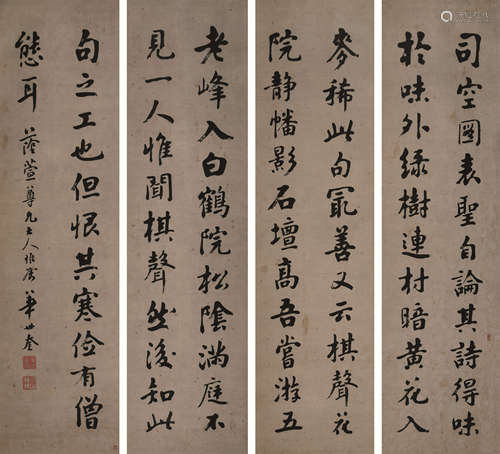 司空圖表聖自論其詩得味
於味外綠樹連村暗黃花入
麥稀此句最善又云棋聲花
院靜幡影石壇高吾嘗游五
老峰入白鶴院松陰滿庭不
見一人惟聞棋聲然後知此
句之工也但恨其寒儉有僧
態耳
蔭萱尊兄大人雅屬 華世奎